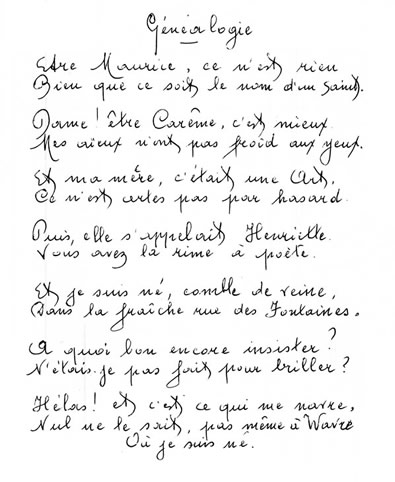 Généalogie
Etre Maurice, ce n'est rien
Bien que ce soit le nom d'un Saint.
Dame ! être Carême, c'est mieux
Mes aïeux n'ont pas froid aux yeux.
Et ma mère, c'était une Art,
Ce n'est certes pas par hasard.
Puis, elle s'appelait Henriette.
Vous avez là rime à poète.
Et je suis né, comble de veine,
Dans la fraîche rue des Fontaines.
A quoi bon encore insister ?
N'étais-je pas fait pour briller ?
Hélas ! et c'est ce qui me navre,
Nul ne le sait, pas même à Wavre
Où je suis né.